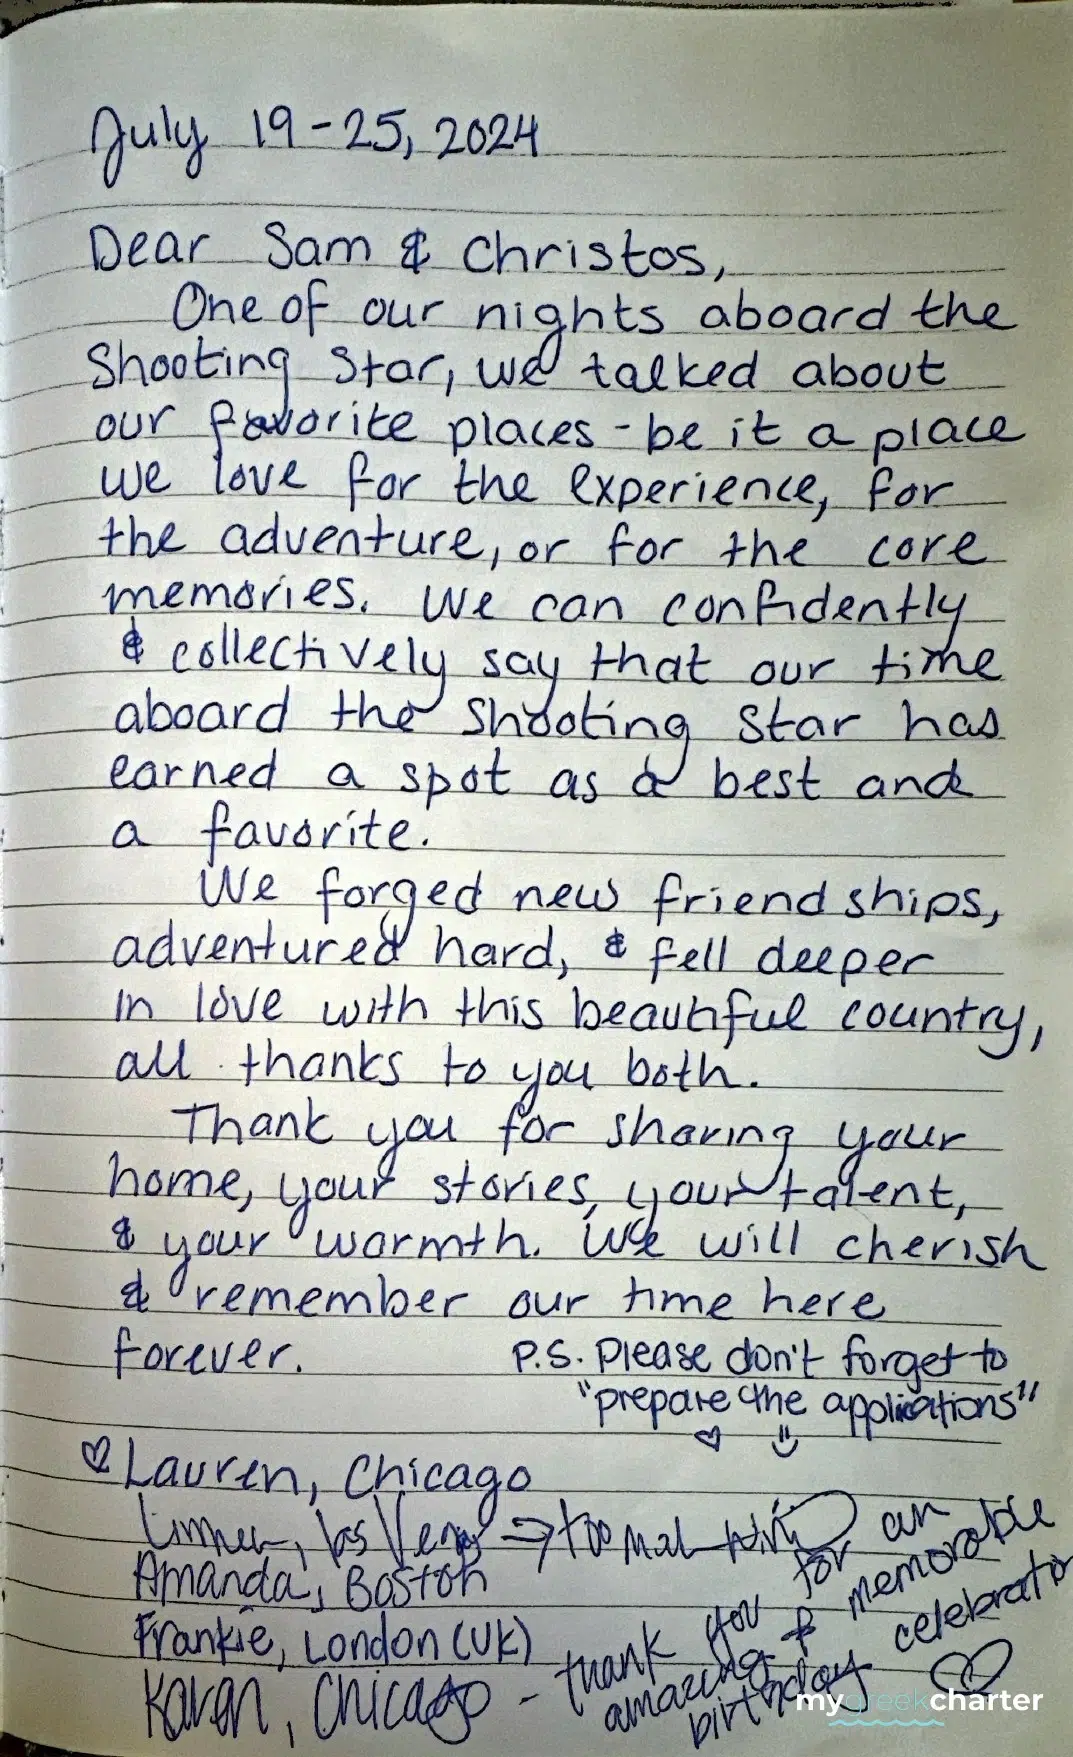 July 19-25, 2024
Dear Sam & Christos,
One of our nights aboard the
Shooting Star, we talked about
our favorite places - be it a place
we love for the experience, for
the adventure, or for the core
memories. We can confidently
& collectively say that our time
aboard the Shooting Star has
earned a spot as a best and
a favorite.
We forged new friendships,
adventured hard, & fell deeper
in love with this beautiful country,
all thanks to you both.
Thank you for sharing your
home, your stories, your talent,
& your warmth. We will cherish
& remember our time here
forever.
P.S. Please don't forget to
"prepare the applications"
♡ Lauren, Chicago
Las Vegas →
Amanda, Boston
Frankie, London (UK)
Karen, Chicago - thank you for an
amazing & memorable
birthday celebration
mygreekcharter